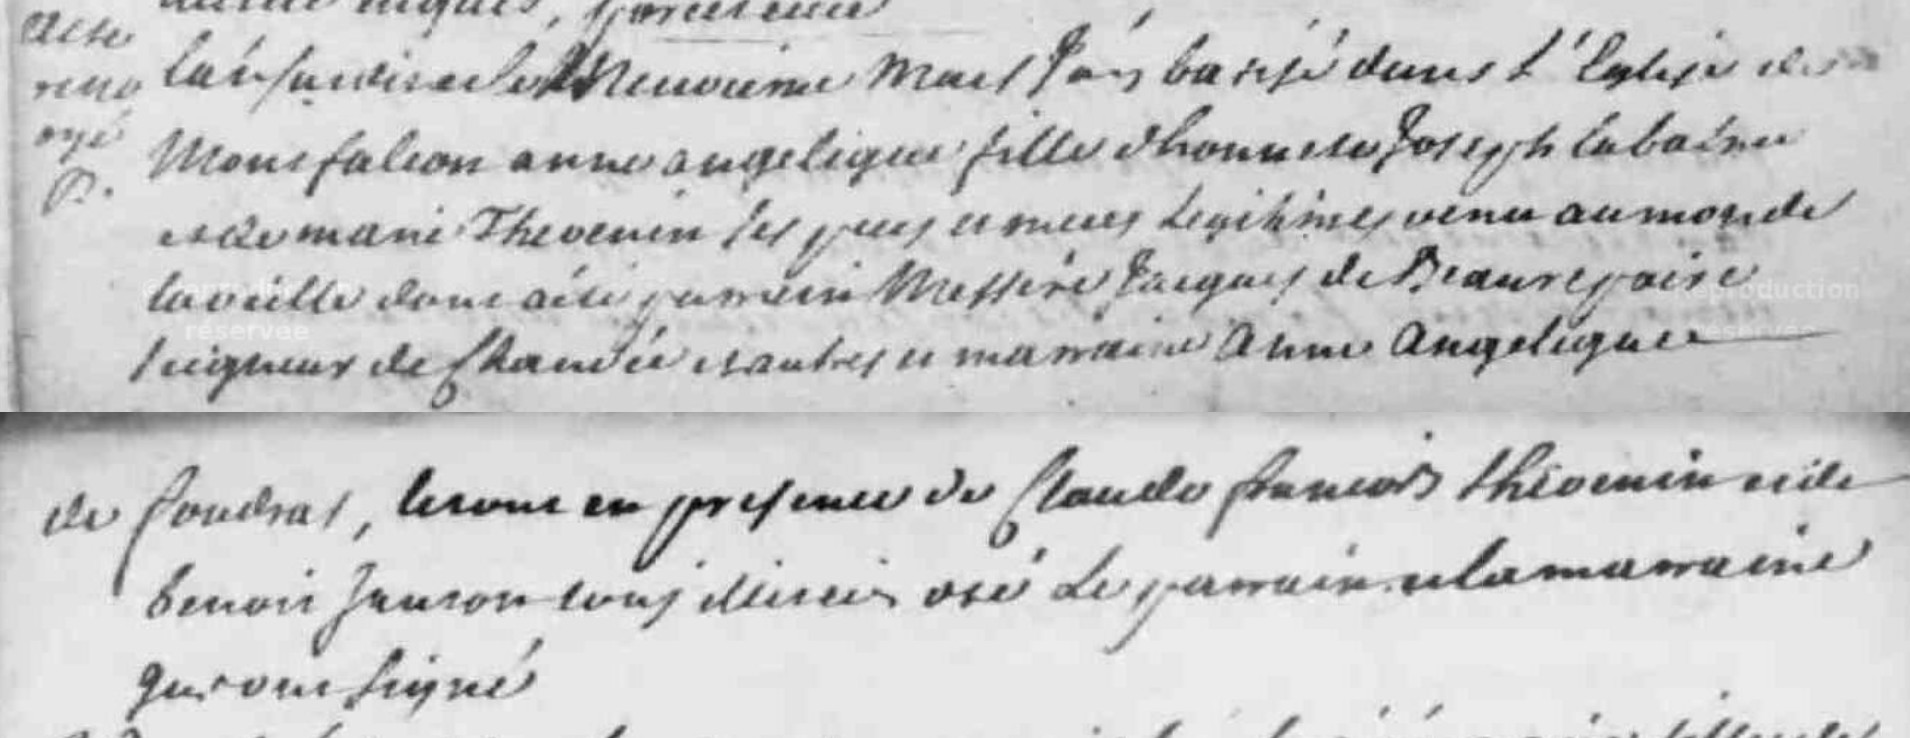 acte
renv
oyé
P.
L'an susdit et le Neuvième Mars J'ay batisé dans l'Eglise de
Montfalcon anne angelique fille d'honnete Joseph
et de marie Thevenin ses pere et mere Legitimes venu au monde
la veille dont a été parrain Messire Jacques de Beaurepaire
seigneur de Chandée et autres et marraine Anne Angelique
de foudras, le tout en presence de Claude francois thevenin et de
benoit Janson tous illiterés ore Le parrain et la marraine
qui ont signé